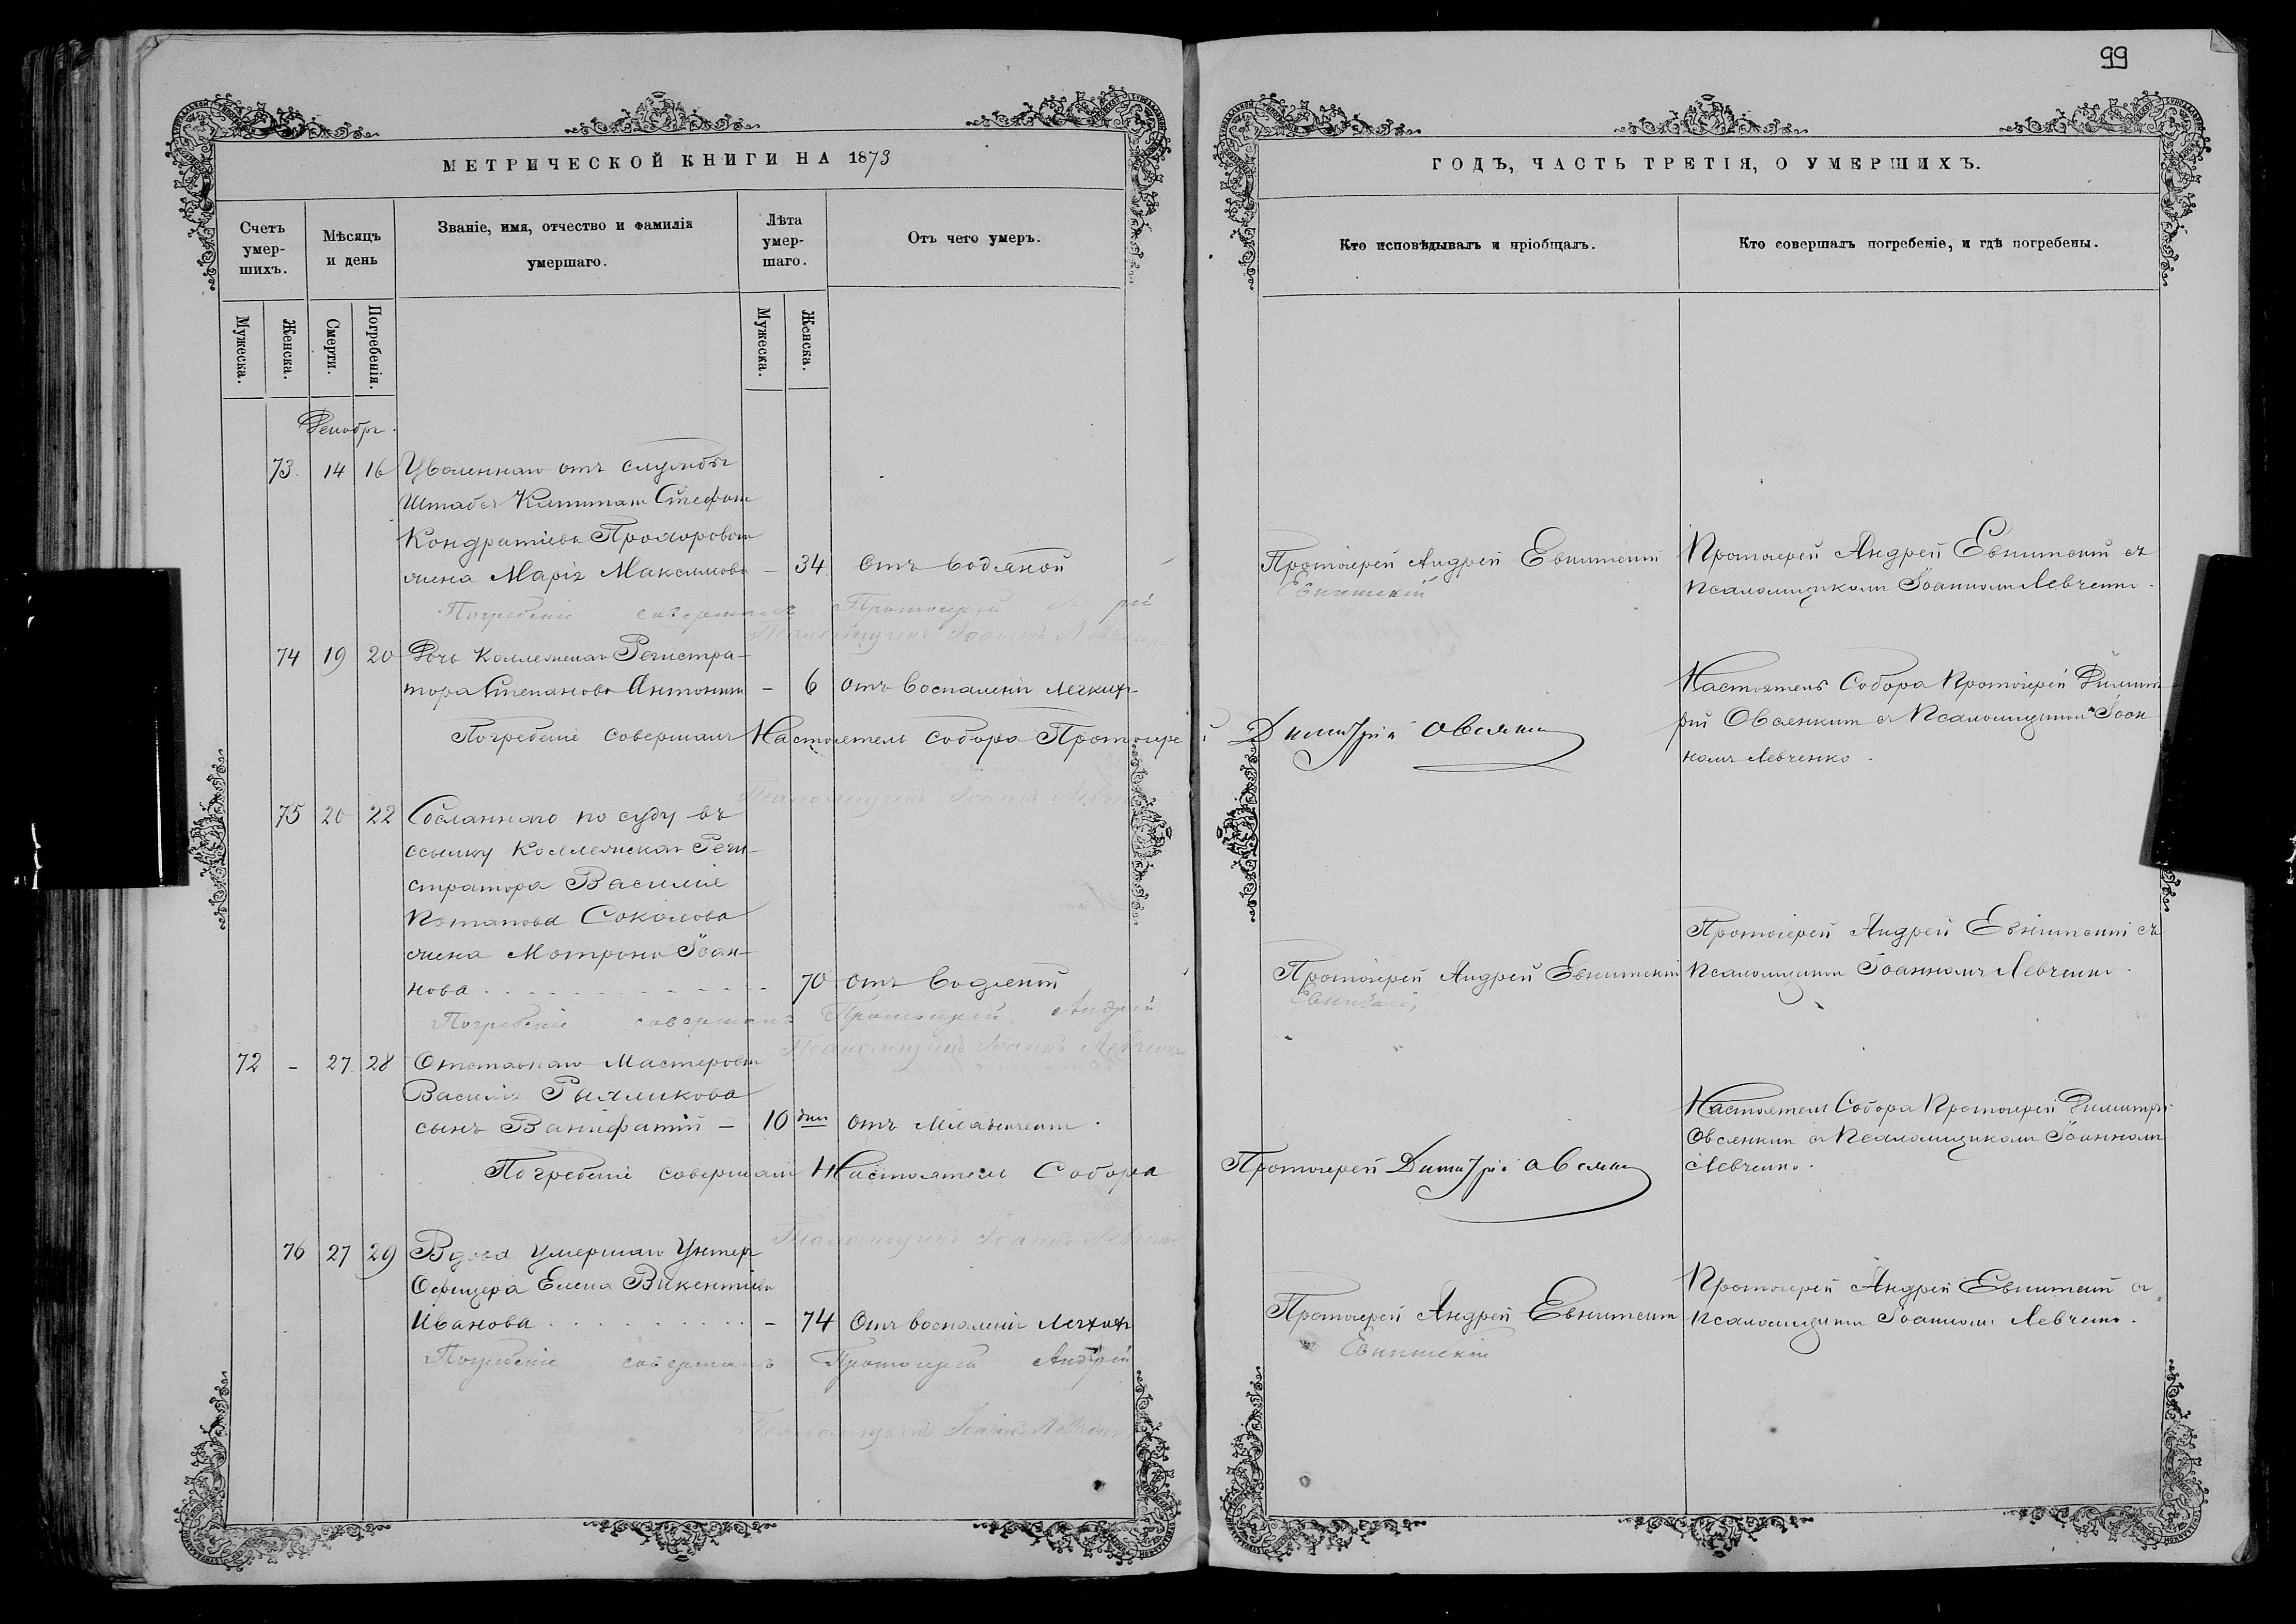 99
МЕТРИЧЕСКОЙ КНИГИ НА 1873
ГОДЪ, ЧАСТЬ ТРЕТІЯ, О УМЕРШИХЪ.
Счетъ умер-шихъ.
Мѣсяцъ и день
Званіе, имя, отчество и фамилія умершаго.
Лѣта умер-шаго.
Отъ чего умеръ.
Кто исповѣдывалъ и пріобщалъ.
Кто совершалъ погребеніе, и гдѣ погребены.
Мужеска.
Женска.
Смерти.
Погребенія.
Мужеска.
Женска.
Декабрь.
73. 14 16 Уволеннаго отъ службы
Штабсъ Капитана Стефана
Кондратіева Прохоровича
жена Марія Максимова – 34 Отъ водяной
Протоіерей Андрей Евнитскій
Протоіерей Андрей Евнитскій съ
Псаломщикомъ Іоанномъ Левченко.
Погребеніе совершалъ Протоіерей
Евнитскій
Псаломщикъ Іоаннъ Левченко
74 19 20 Дочь Коллежскаго Регистра-
тора Степанова Антонина – 6 отъ воспаленія легкихъ
Настоятель Собора Протоіерей Димит-
рій Овсянкинъ съ Псаломщикомъ Іоан
номъ Левченко.
Погребеніе совершалъ Настоятель собора Протоіерей Димитрій Овсянкинъ
Псаломщикъ Іоаннъ Левченко
75 20 22 Сосланнаго по суду въ
ссылку Коллежскаго Реги-
стратора Василія
Потапова Соколова
жена Матрона Іоан-
нова – 70 отъ водяной
Протоіерей Андрей Евнитскій
Протоіерей Андрей Евнитскій съ
Псаломщикомъ Іоанномъ Левченко.
Погребеніе совершалъ Протоіерей Андрей
Евнитскій
Псаломщикъ Іоаннъ Левченко
72 – 27 28 Отставнаго Мастероваго
Василія
сынъ Вонифатій – 10 дней отъ младенческой.
Настоятель Собора Протоіерей Димитрій
Овсянкинъ съ Псаломщикомъ Іоанномъ
Левченко.
Погребеніе совершалъ Настоятель Собора
Протоіерей Димитрій Овсянкинъ
Псаломщикъ Іоаннъ Левченко
76 27 29 Вдова умершаго Унтеръ
Офицера Елена Викентіева
Иванова – 74 Отъ воспаленія легкихъ
Протоіерей Андрей Евнитскій
Протоіерей Андрей Евнитскій съ
Псаломщикомъ Іоанномъ Левченко.
Погребеніе совершалъ Протоіерей Андрей
Евнитскій
Псаломщикъ Іоаннъ Левченко